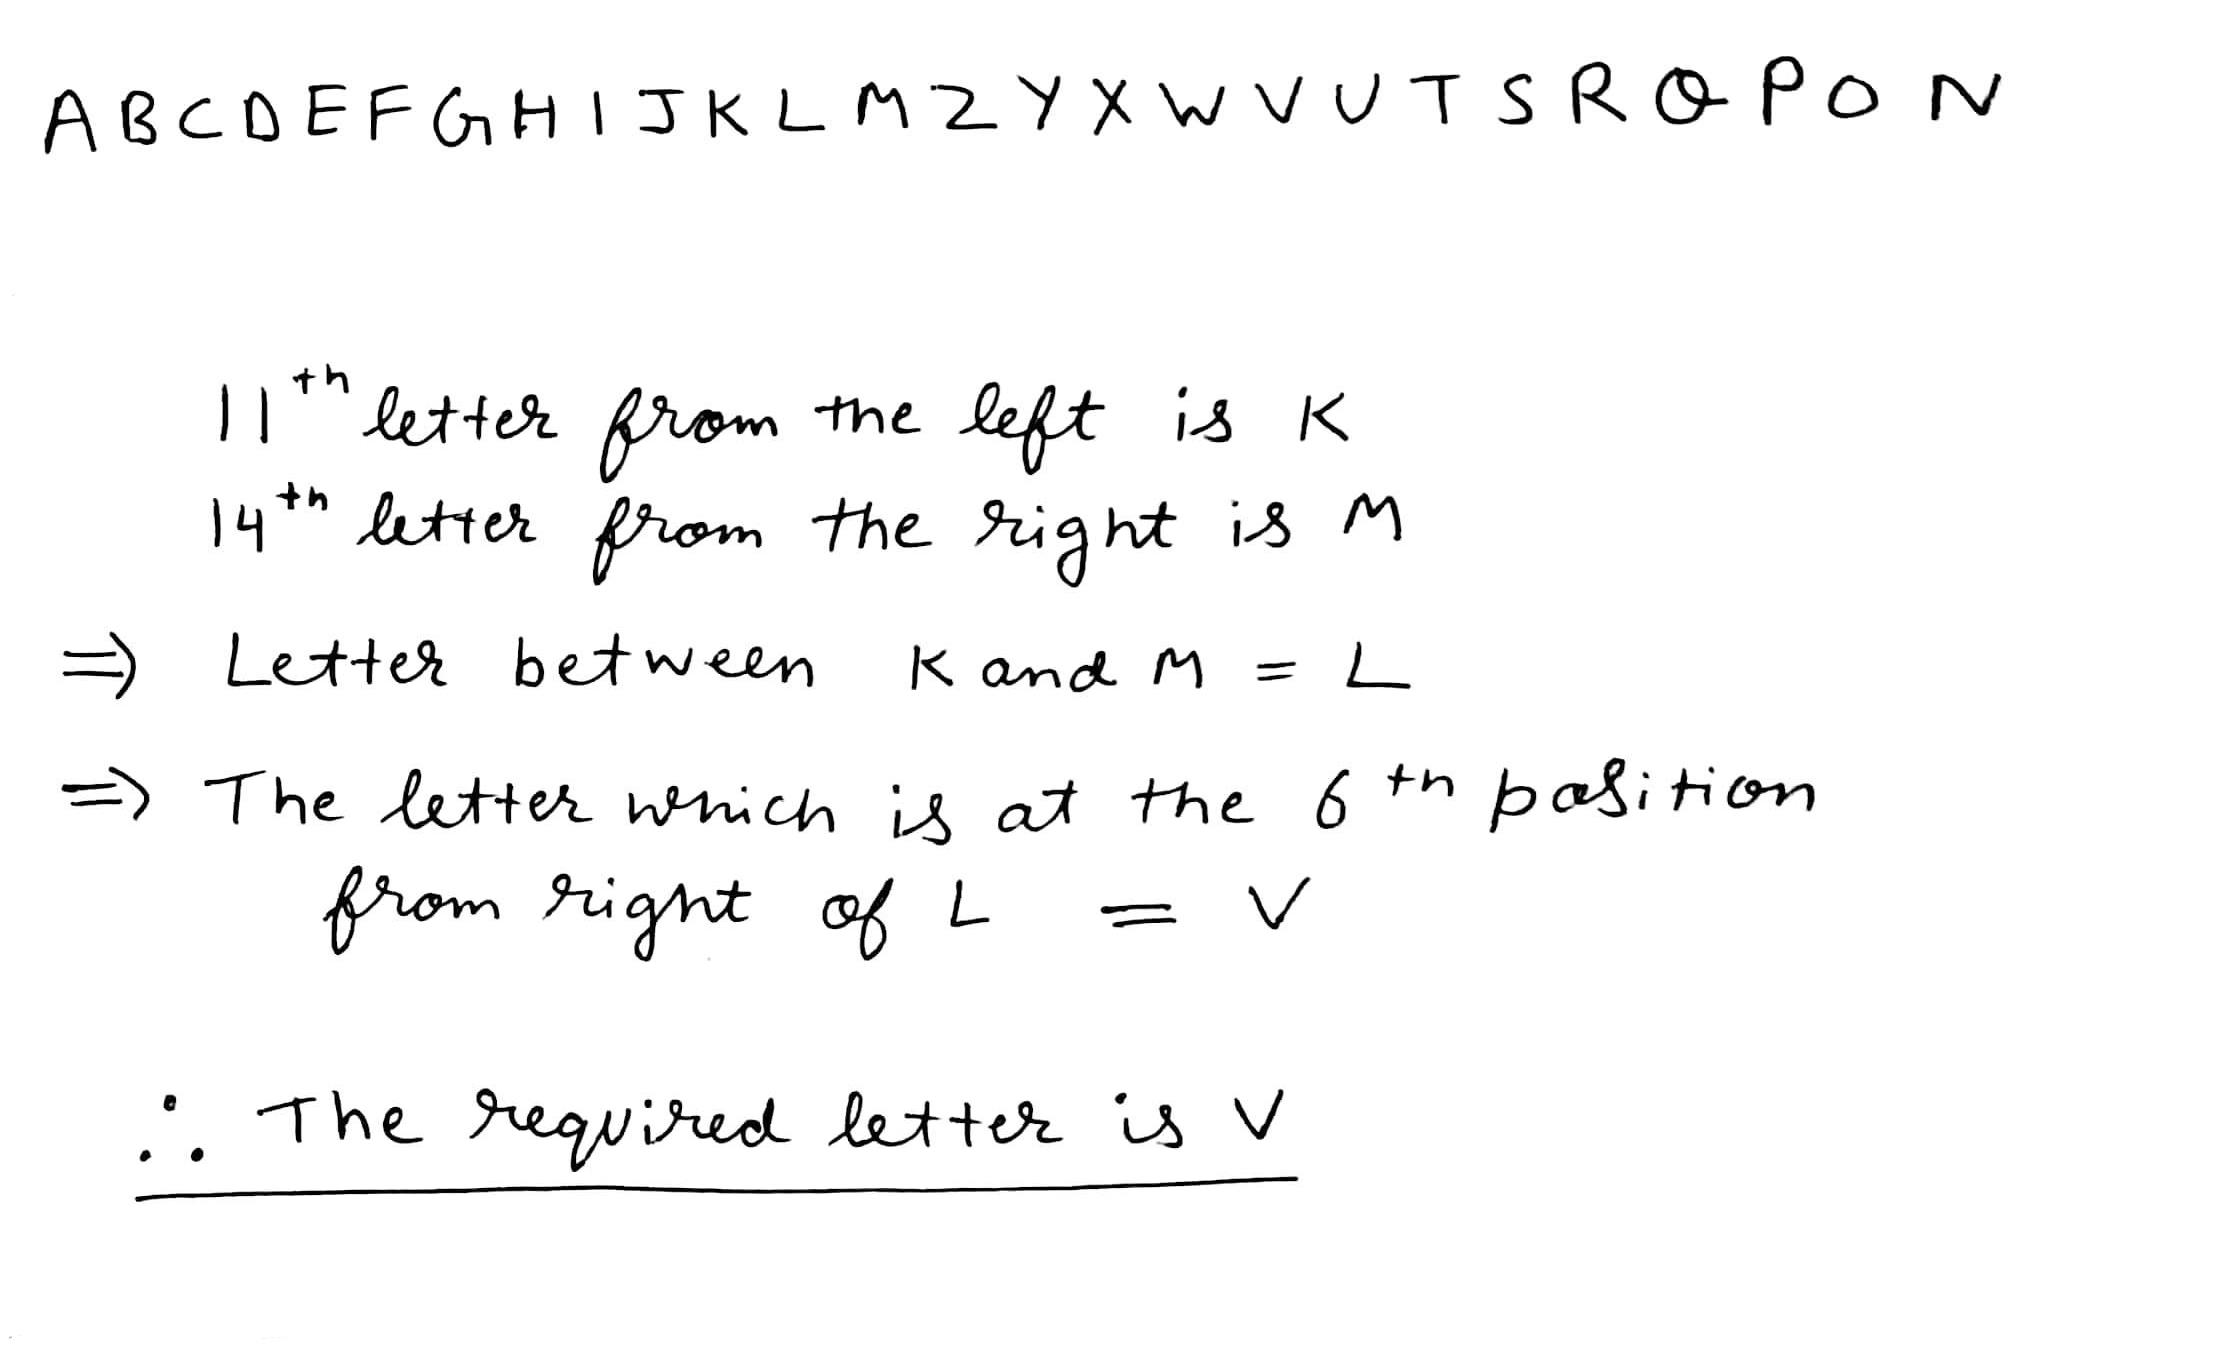 A B C D E F G H I J K L M Z Y X W V U T S R Q P O N
11th letter from the left is K
14th letter from the right is M
⇒ Letter between K and M = L
⇒ The letter which is at the 6th position
from right of L = V
∴ The required letter is V